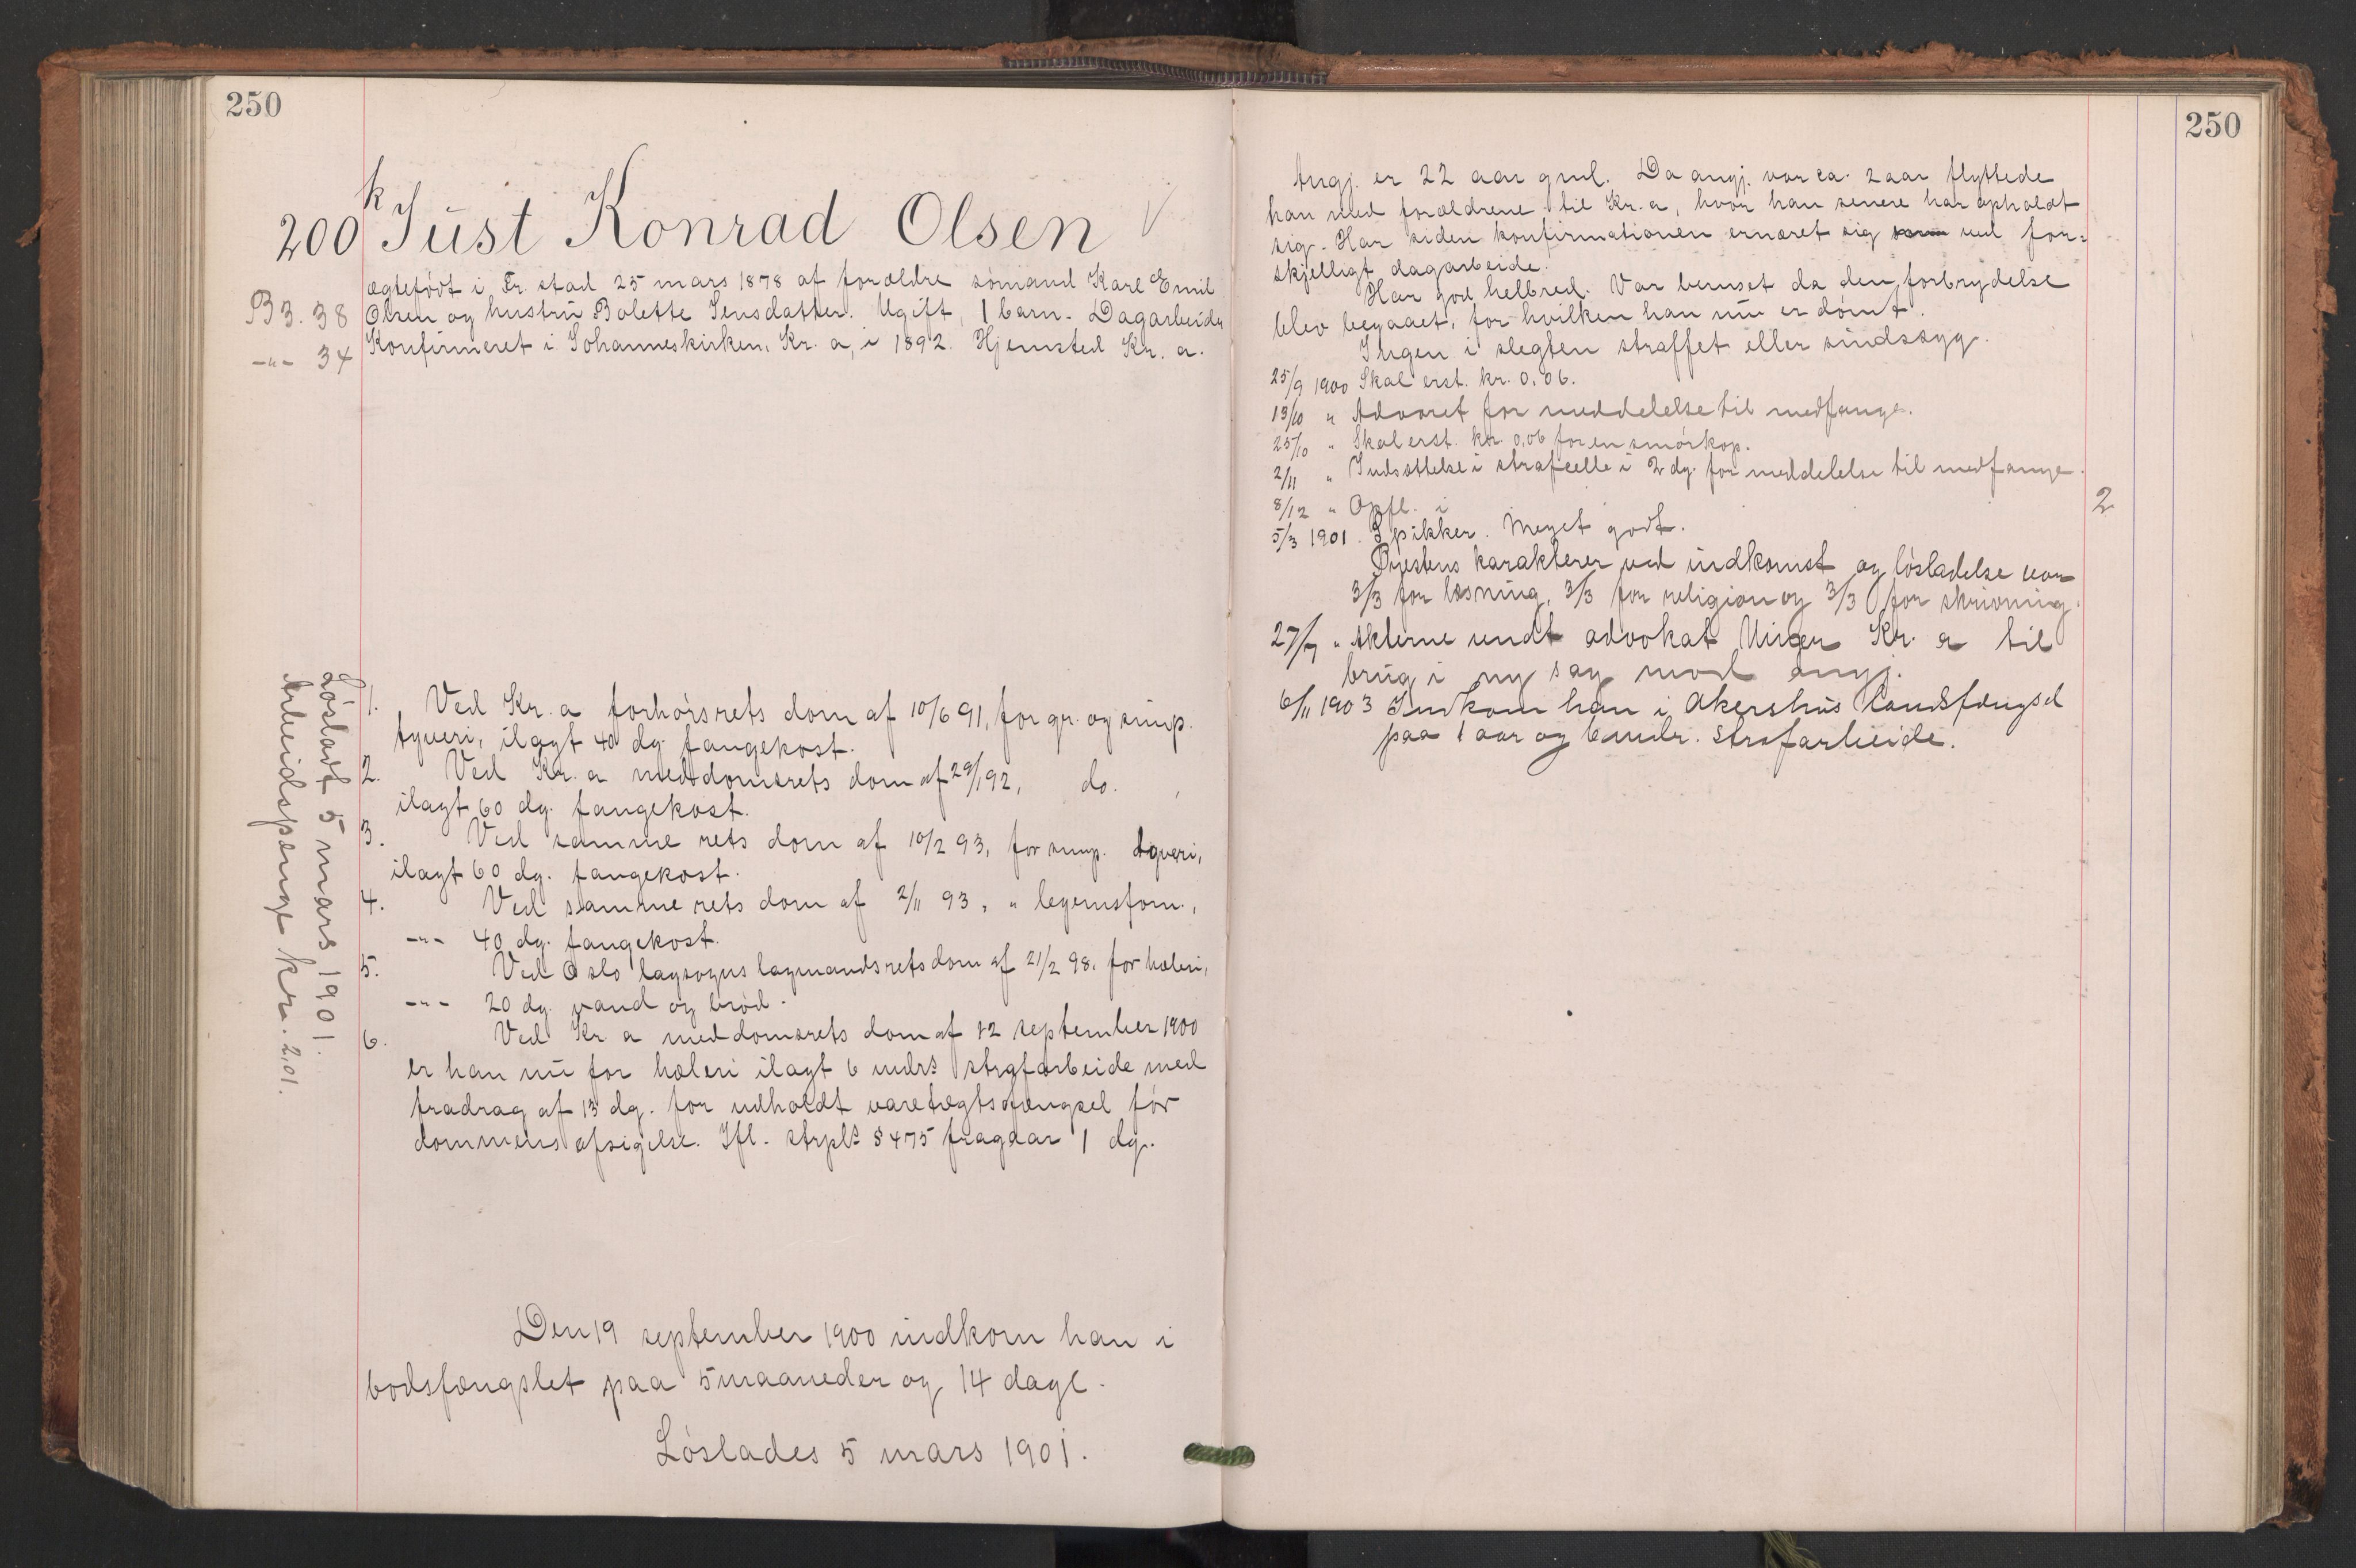 250
k
200 Just Konrad Olsen V
ægtefödt i Fr. stad 25 mars 1878 af forældre sömand Karl Emil
B 3. 38 Olsen og hustru Bolette Jensdatter. Ugift, 1 barn. Dagarbeider
-"- 34 Konfirmeret i Johanneskirken, Kr. a, i 1892. Hjemsted Kr. a.
Lösladt 5 mars 1901.
Arbeidspenge kr. 2,01.
1. Ved Kr. a forhörsrets dom af 10/6 91, for gr. og simp.
tyveri, ilagt 40 dg. fangekost.
2. Ved Kr. a meddomsrets dom af 29/1 92, do. ,
ilagt 60 dg. fangekost.
3. Ved samme rets dom af 10/2 93, for simp. tyveri,
ilagt 60 dg. fangekost.
4. Ved samme rets dom af 2/11 93, " legemsforn.,
-"- 40 dg. fangekost.
5. Ved Oslo lagsogns lagmandsrets dom af 21/2 98, for hæleri,
-"- 20 dg. vand og bröd.
6. Ved Kr. a meddomsrets dom af 12 september 1900
er han nu for hæleri ilagt 6 mdrs strafarbeide med
fradrag af 13 dg. for udholdt varetægtsfængsel för
dommens afsigelse. Ifl. strpls § 475 fragaar 1 dg.
Den 19 september 1900 indkom han i
bodsfængslet paa 5 maaneder og 14 dage.
Löslades 5 mars 1901.
250
Angj. er 22 aar gml. Da angj. var ca. 2 aar flyttede
han med forældrene til Kr. a, hvor han senere har opholdt
sig. Har siden konfirmationen ernæret sig som ved for-
skjelligt dagarbeide.
Har god helbred. Var beruset da den forbrydelse
blev begaaet, for hvilken han nu er dömt.
Ingen i slegten straffet eller sindssyg.
25/9 1900 Skal erst. kr. 0,06.
13/10 " Advaret for meddelelse til medfange.
25/10 " Skal erst. kr. 0,06 for en smörkop.
2/11 " Indsættelse i strafcelle i 2 dg. for meddelelse til medfange.
8/12 " Opfl. i 2
5/3 1901. Spikker. Meget godt.
Prestens karakterer ved indkomst og lösladelse var
3/3 for læsning, 3/3 for religion og 3/3 for skrivning.
27/7 " Akterne sendt advokat Kr. a til
brug i ny sag mod angj.
6/11 1903 Indkom han i Akershus landsfængsel
paa 1 aar og 6 mdr. strafarbeide.